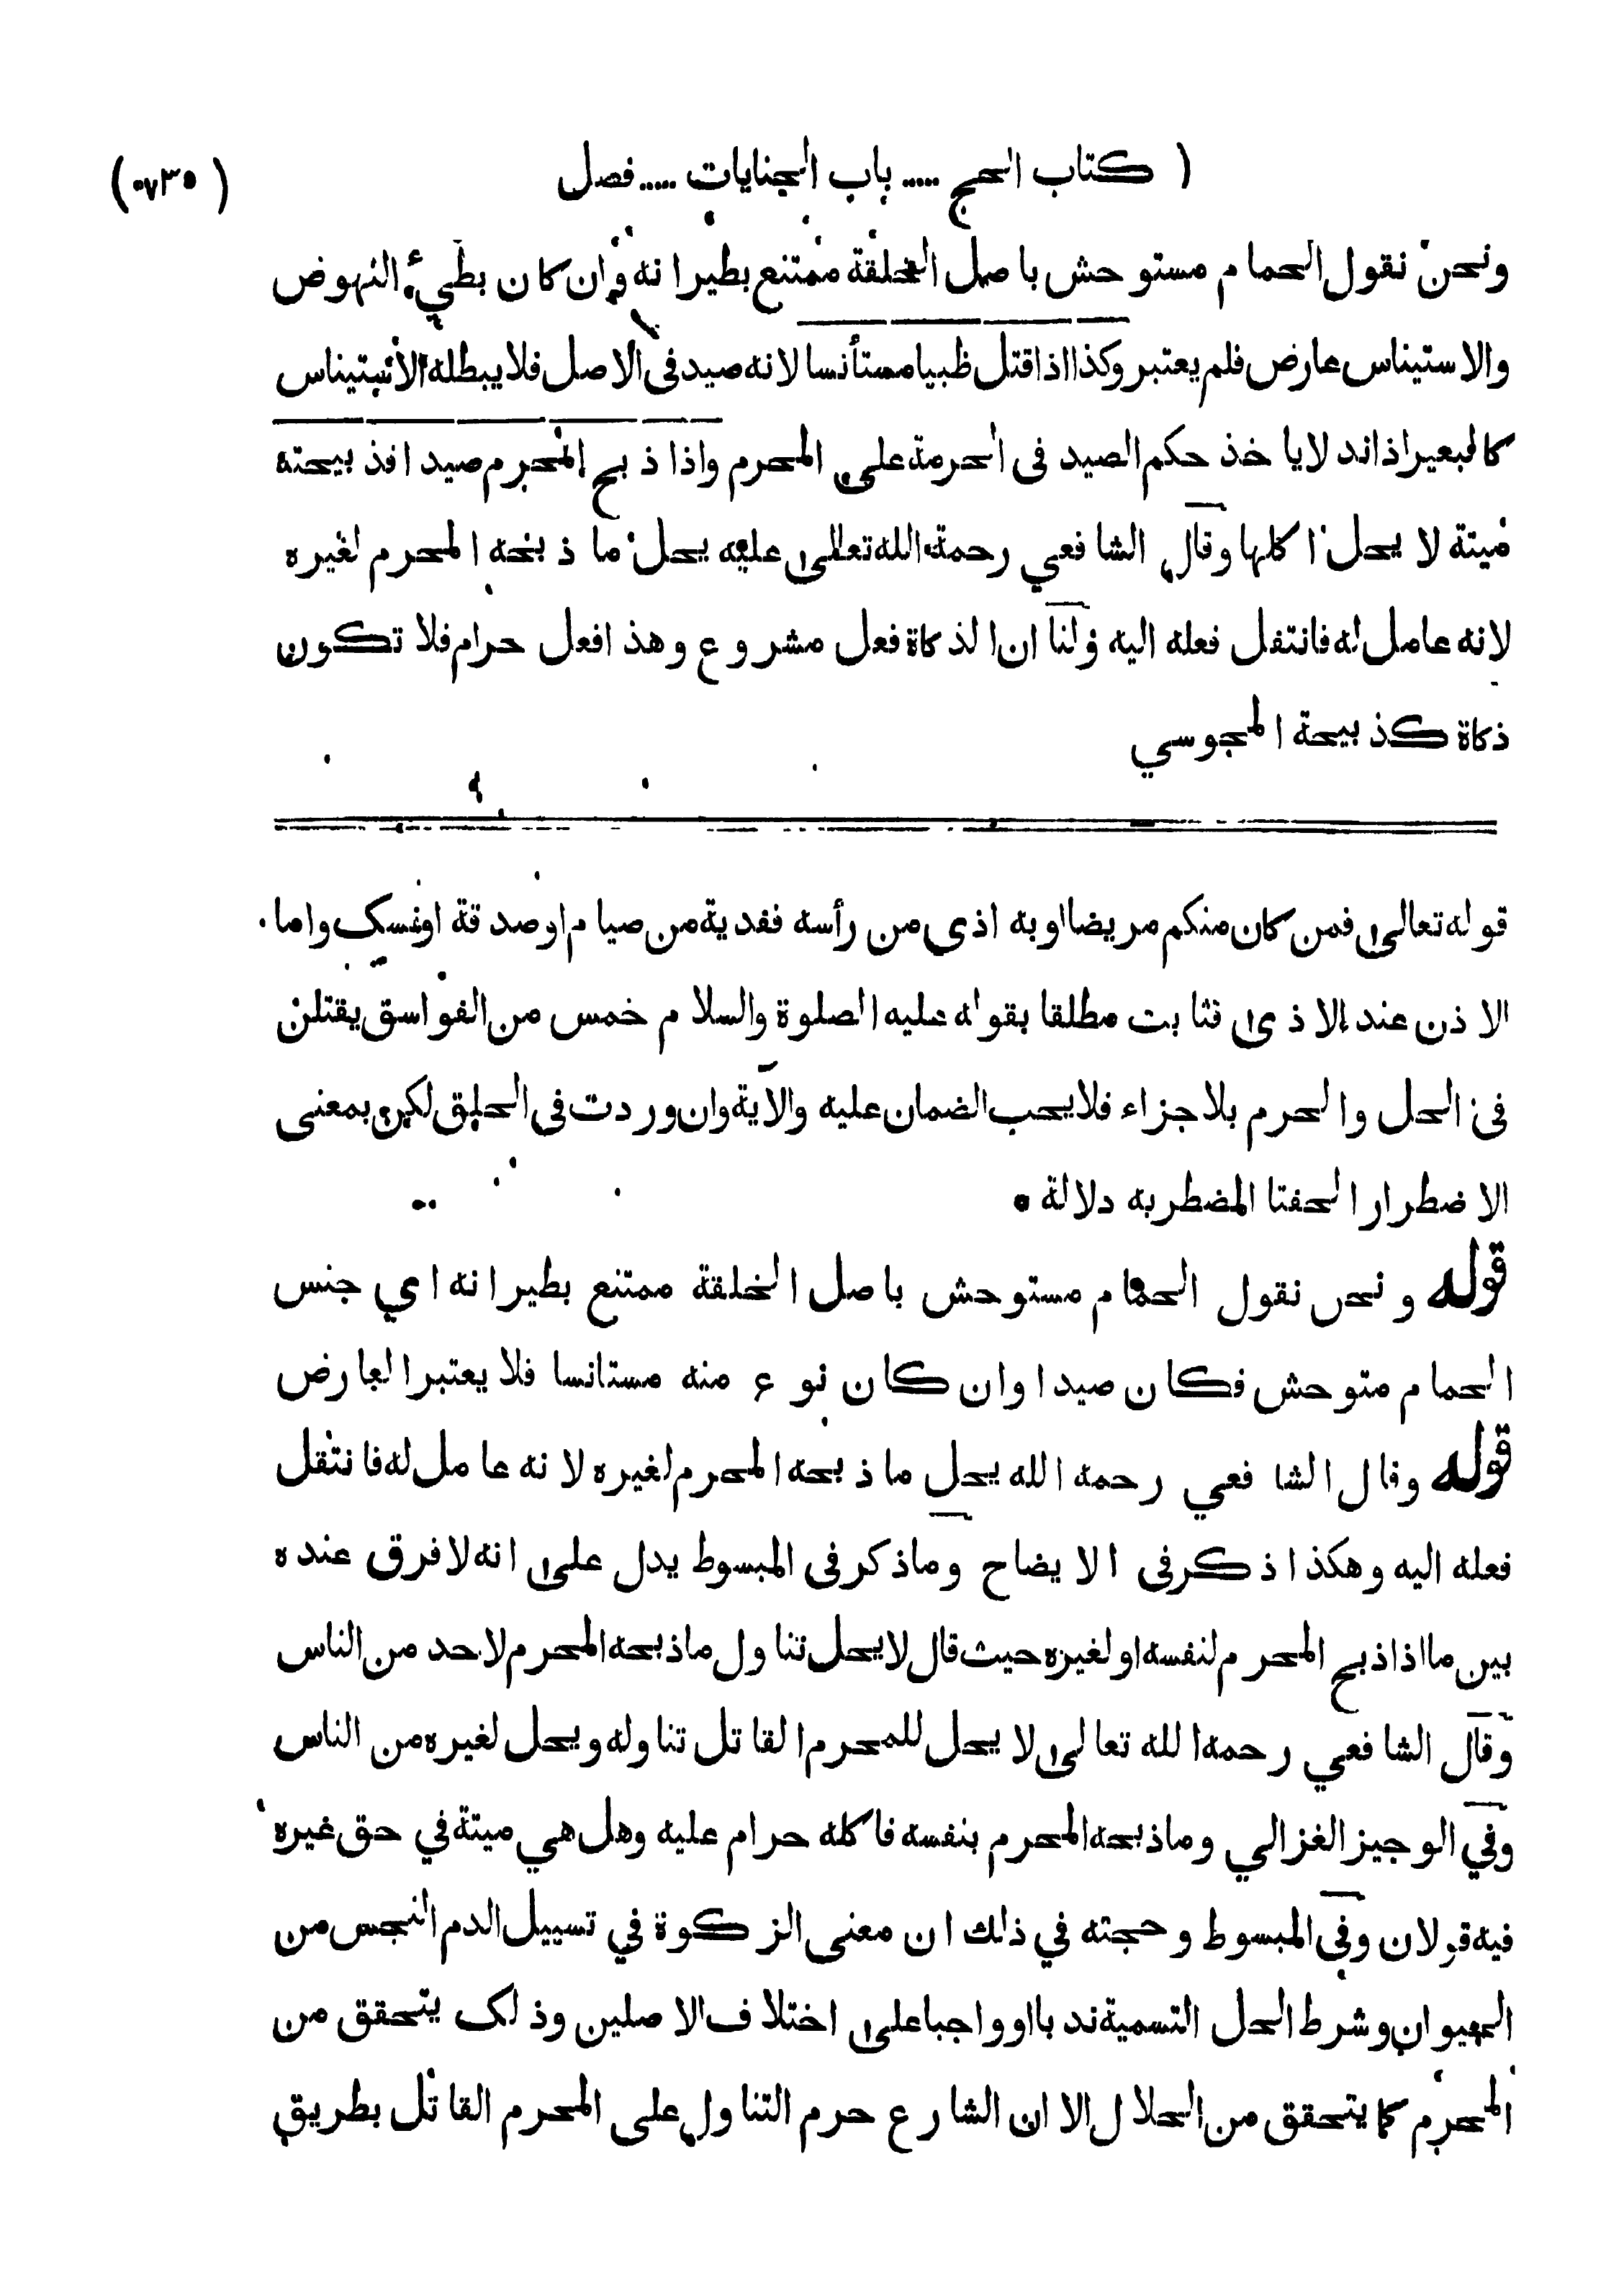 ( كتاب الحج ..... باب الجنايات ..... فصل
( ٧٣٥ )
ونحن نقول الحمام مستوحش باصل الخلقة ممتنع بطيرانه وان كان بطيء النهوض
والاستيناس عارض فلم يعتبر وكذا اذا قتل ظبيا مستأنسا لانه صيد في الاصل فلا يبطله الاستيناس
كالبعير اذا ند لا ياخذ حكم الصيد في الحرمة على المحرم واذا ذبح المحرم صيدا فذبيحته
ميتة لا يحل اكلها وقال الشافعي رحمة الله تعالى عليه يحل ما ذبحه المحرم لغيره
لانه عامل له فانتقل فعله اليه ولنا ان الذكاة فعل مشروع وهذا فعل حرام فلا تكون
ذكاة كذبيحة المجوسي
قوله تعالى فمن كان منكم مريضا او به اذى من رأسه ففدية من صيام او صدقة او نسك واما
الاذن عند الاذى فثابت مطلقا بقوله عليه الصلوة والسلام خمس من الفواسق يقتلن
في الحل والحرم بلا جزاء فلا يجب الضمان عليه والآية وان وردت في الحلق لكن بمعنى
الاضطرار الحقنا المضطر به دلالة •
قوله ونحن نقول الحمام مستوحش باصل الخلقة ممتنع بطيرانه اي جنس
الحمام متوحش فكان صيدا وان كان نوع منه مستانسا فلا يعتبر العارض
قوله وقال الشافعي رحمه الله يحل ما ذبحه المحرم لغيره لانه عامل له فانتقل
فعله اليه وهكذا ذكر في الايضاح وما ذكر في المبسوط يدل على انه لا فرق عنده
بين ما اذا ذبح المحرم لنفسه او لغيره حيث قال لا يحل تناول ما ذبحه المحرم لاحد من الناس
وقال الشافعي رحمه الله تعالى لا يحل للمحرم القاتل تناوله ويحل لغيره من الناس
وفي الوجيز الغزالي وما ذبحه المحرم بنفسه فاكله حرام عليه وهل هي ميتة في حق غيره
فيه قولان وفي المبسوط وحجته في ذلك ان معنى الزكوة في تسييل الدم النجس من
الحيوان وشرط الحل التسمية ندبا او واجبا على اختلاف الاصلين وذلك يتحقق من
المحرم كما يتحقق من الحلال الا ان الشارع حرم التناول على المحرم القاتل بطريق